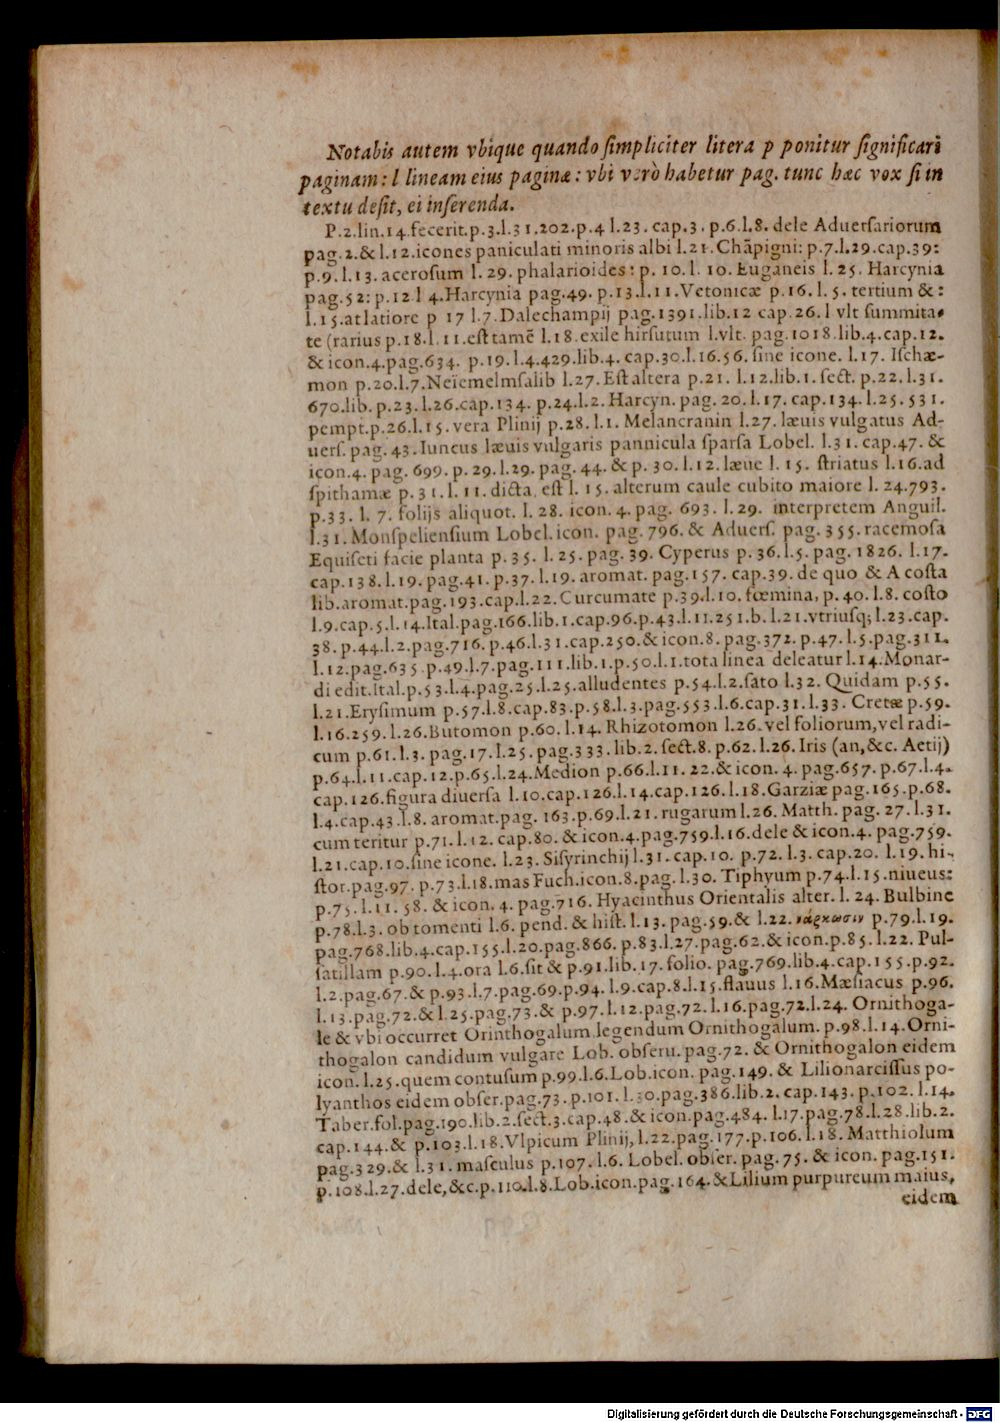 Notabis autem vbique quando ſimpliciter litera p ponitur ſignificari
paginam: l lineam eius paginæ: vbi verò habetur pag. tunc hæc vox ſi in
textu deſit, ei inſerenda.
P.2.lin.14.fecerit.p.3.l.31.202.p.4 l.23. cap.3. p.6.l.8. dele Aduerſariorum
pag.2.& l.12.icones paniculati minoris albi l.21. Chāpigni: p.7.l.29.cap.39:
p.9.l.13. aceroſum l. 29. phalarioides: p. 10.l. 10. Euganeis l. 25. Harcynia
pag.52: p.12 l 4.Harcynia pag.49. p.13.l.11.Vetonicæ p.16.l.5. tertium &:
l.15.atlatiore p 17 l.7.Dalechampij pag.1391.lib.12 cap.26.l vlt ſummita-
te (rarius p.18.l.11.eſt tamē l.18.exile hirſutum l.vlt. pag.1018.lib.4.cap.12.
& icon.4.pag.634. p.19.l.4.429.lib.4. cap.30.l.16.56. ſine icone. l.17. Iſchæ-
mon p.20.l.7.Neïemelmſalib l.27.Eſt altera p.21. l.12.lib.1.ſect. p.22.l.31.
670.lib. p.23.l.26.cap.134. p.24.l.2. Harcyn. pag. 20.l.17. cap.134.l.25.531.
pempt.p.26.l.15. vera Plinij p.28.l.1. Melancranin l.27. læuis vulgatus Ad-
uerſ. pag. 43. Iuncus læuis vulgaris pannicula ſparſa Lobel. l.31. cap.47. &
icon.4. pag. 699. p. 29.l.29. pag. 44. & p. 30.l.12. læue l. 15. ſtriatus l.16.ad
ſpithamæ p.31.l.11.dicta eſt l. 15. alterum caule cubito maiore l. 24.793.
p.33. l. 7. folijs aliquot. l. 28. icon. 4. pag. 693. l. 29. interpretem Anguil.
l.31. Monſpelienſium Lobel. icon. pag. 796. & Aduerſ. pag. 355. racemoſa
Equiſeti facie planta p.35. l.25.pag. 39. Cyperus p. 36.l.5. pag. 1826. l.17.
cap.138.l.19.pag.41.p.37.l.19.aromat. pag.157. cap.39. de quo & A coſta
lib.aromat.pag.193.cap.l.22.Curcumate p.39.l.10. fœmina, p.40.l.8. coſto
l.9.cap.5.l.14.Ital.pag.166.lib.1.cap.96.p.43.l.11.251.b.l.21.vtriuſq; l.23.cap.
38. p.44.l.2.pag.716.p.46.l.31.cap.250.& icon.8. pag.372. p.47. l.5.pag.311.
l.12.pag.635.p.49.l.7.pag.111.lib.1.p.50.l.1.tota linea deleatur l.14.Monar-
di edit.Ital.p.53.l.4.pag.25.l.25.alludentes p.54.l.2.ſato l.32. Quidam p.55.
l.21.Eryſimum p.57.l.8.cap.83.p.58.l.3.pag.553.l.6.cap.31.l.33. Cretæ p.59.
l.16.259.l.26.Butomon p.60.l.14. Rhizotomon l.26.vel foliorum,vel radi-
cum p.61.l.3. pag.17.l.25.pag.333.lib.2.ſect.8.p.62.l.26. Iris (an,&c. Aetij)
p.64.l.11.cap.12.p.65.l.24.Medion p.66.l.11.22.& icon. 4. pag.657. p.67.l.4.
cap.126.figura diuerſa l.10.cap.126.l.14.cap.126.l.18.Garziæ pag.165.p.68.
l.4.cap.43.l.8. aromat.pag. 163.p.69.l.21.rugarum l.26. Matth. pag. 27.l.31.
cum teritur p.71.l.12. cap.80. & icon.4.pag.759.l.16.dele & icon.4. pag.759.
l.21.cap.10.ſine icone. l.23. Siſyrinchij l.31.cap.10. p.72.l.3. cap.20. l.19.hi-
ſtor.pag.97. p.73.l.18.mas Fuch.icon.8.pag.l.30. Tiphyum p.74.l.15.niueus:
p.75.l.11. 58. & icon. 4. pag.716. Hyacinthus Orientalis alter. l. 24. Bulbine
p.78.l.3. ob tomenti l.6. pend. & hiſt. l.13. pag.59.& l.22. νάρκωσιν p.79.l.19.
pag.768.lib.4.cap.155.l.20.pag.866. p.83.l.27.pag.62.& icon.p.85.l.22. Pul-
ſatillam p.90.l.4.ora l.6.ſit & p.91.lib.17.folio. pag.769.lib.4.cap.155.p.92.
l.2.pag.67.& p.93.l.7.pag.69.p.94. l.9.cap.8.l.15.flauus l.16.Mæſiacus p.96.
l.13.pag.72.& l.25.pag.73.& p.97.l.12.pag.72.l.16.pag.72.l.24. Ornithoga-
le & vbi occurret Orinthogalum legendum Ornithogalum. p.98.l.14.Orni-
thogalon candidum vulgare Lob. obſeru.pag.72. & Ornithogalon eidem
icon.l.25.quem contuſum p.99.l.6.Lob.icon. pag.149.& Lilionarciſſus po-
lyanthos eidem obſer.pag.73. p.101. l.30.pag.386.lib.2. cap.143. p.102. l.14.
Taber.fol.pag.190.lib.2.ſect.3.cap.48.& icon.pag.484. l.17.pag.78.l.28.lib.2.
cap.144.& p.103.l.18.Vlpicum Plinij, l.22.pag.177.p.106.l.18. Matthiolum
pag.329.& l.31.maſculus p.107. l.6. Lobel. obſer. pag. 75. & icon. pag.151.
p.108.l.27.dele,&c.p.110.l.8.Lob.icon.pag.164.& Lilium purpureum maius,
eidem
Digitalisierung gefördert durch die Deutsche Forschungsgemeinschaft - DFG